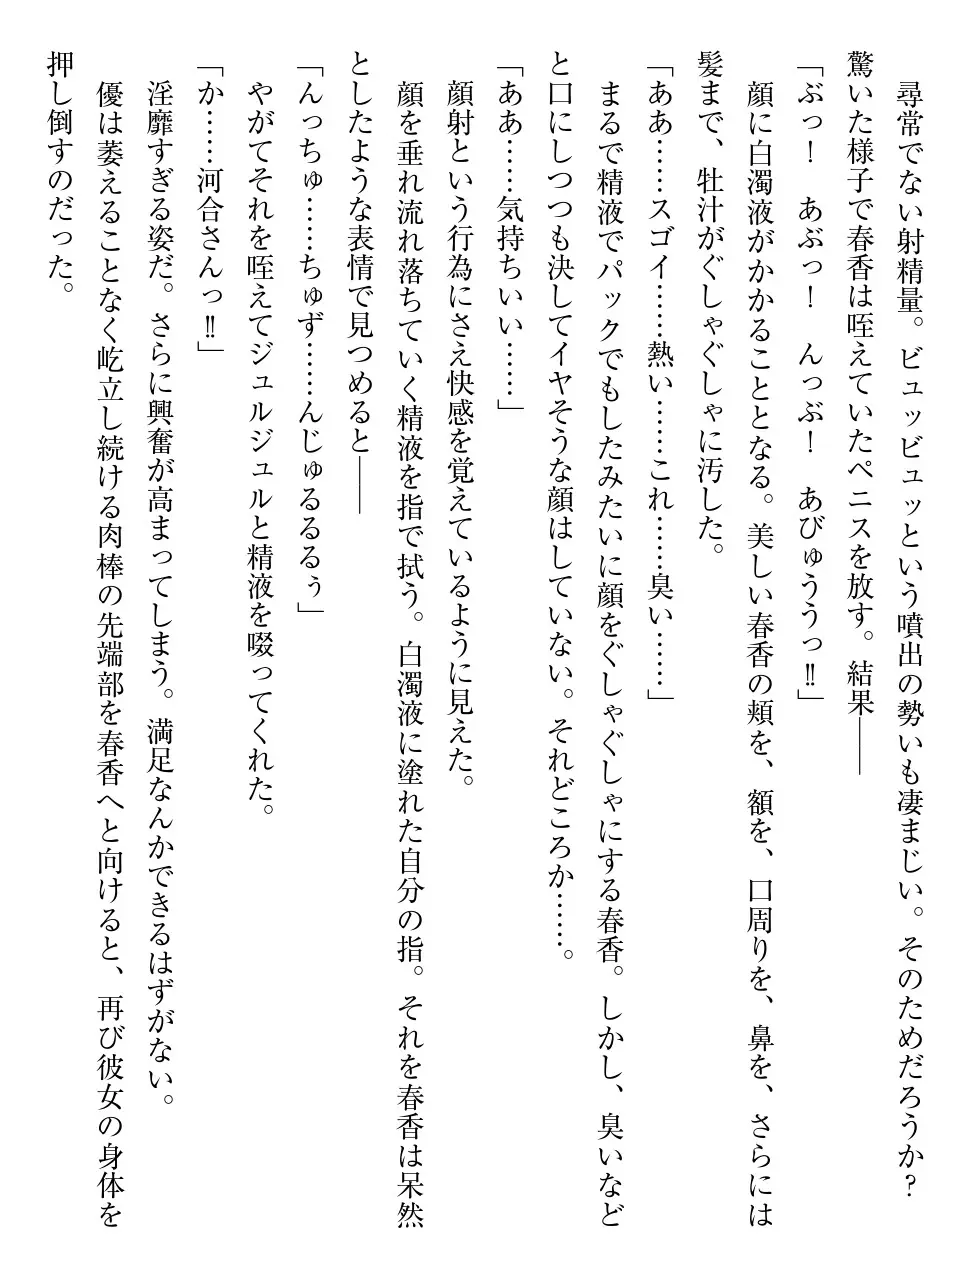 尋常でない射精量。ビュッビュッという噴出の勢いも凄まじい。そのためだろうか？
驚いた様子で春香は咥えていたペニスを放す。結果――
「ぶっ！　あぶっ！　んっぶ！　あびゅううっ‼」
顔に白濁液がかかることとなる。美しい春香の頬を、額を、口周りを、鼻を、さらには
髪まで、牡汁がぐしゃぐしゃに汚した。
「ああ……スゴイ……熱い……これ……臭い……」
まるで精液でパックでもしたみたいに顔をぐしゃぐしゃにする春香。しかし、臭いなど
と口にしつつも決してイヤそうな顔はしていない。それどころか……。
「ああ……気持ちいい……」
顔射という行為にさえ快感を覚えているように見えた。
顔を垂れ流れ落ちていく精液を指で拭う。白濁液に塗れた自分の指。それを春香は呆然
としたような表情で見つめると――
「んっちゅ……ちゅず……んじゅるるるぅ」
やがてそれを咥えてジュルジュルと精液を啜ってくれた。
「か……河合さんっ‼」
淫靡すぎる姿だ。さらに興奮が高まってしまう。満足なんかできるはずがない。
優は萎えることなく屹立し続ける肉棒の先端部を春香へと向けると、再び彼女の身体を
押し倒すのだった。